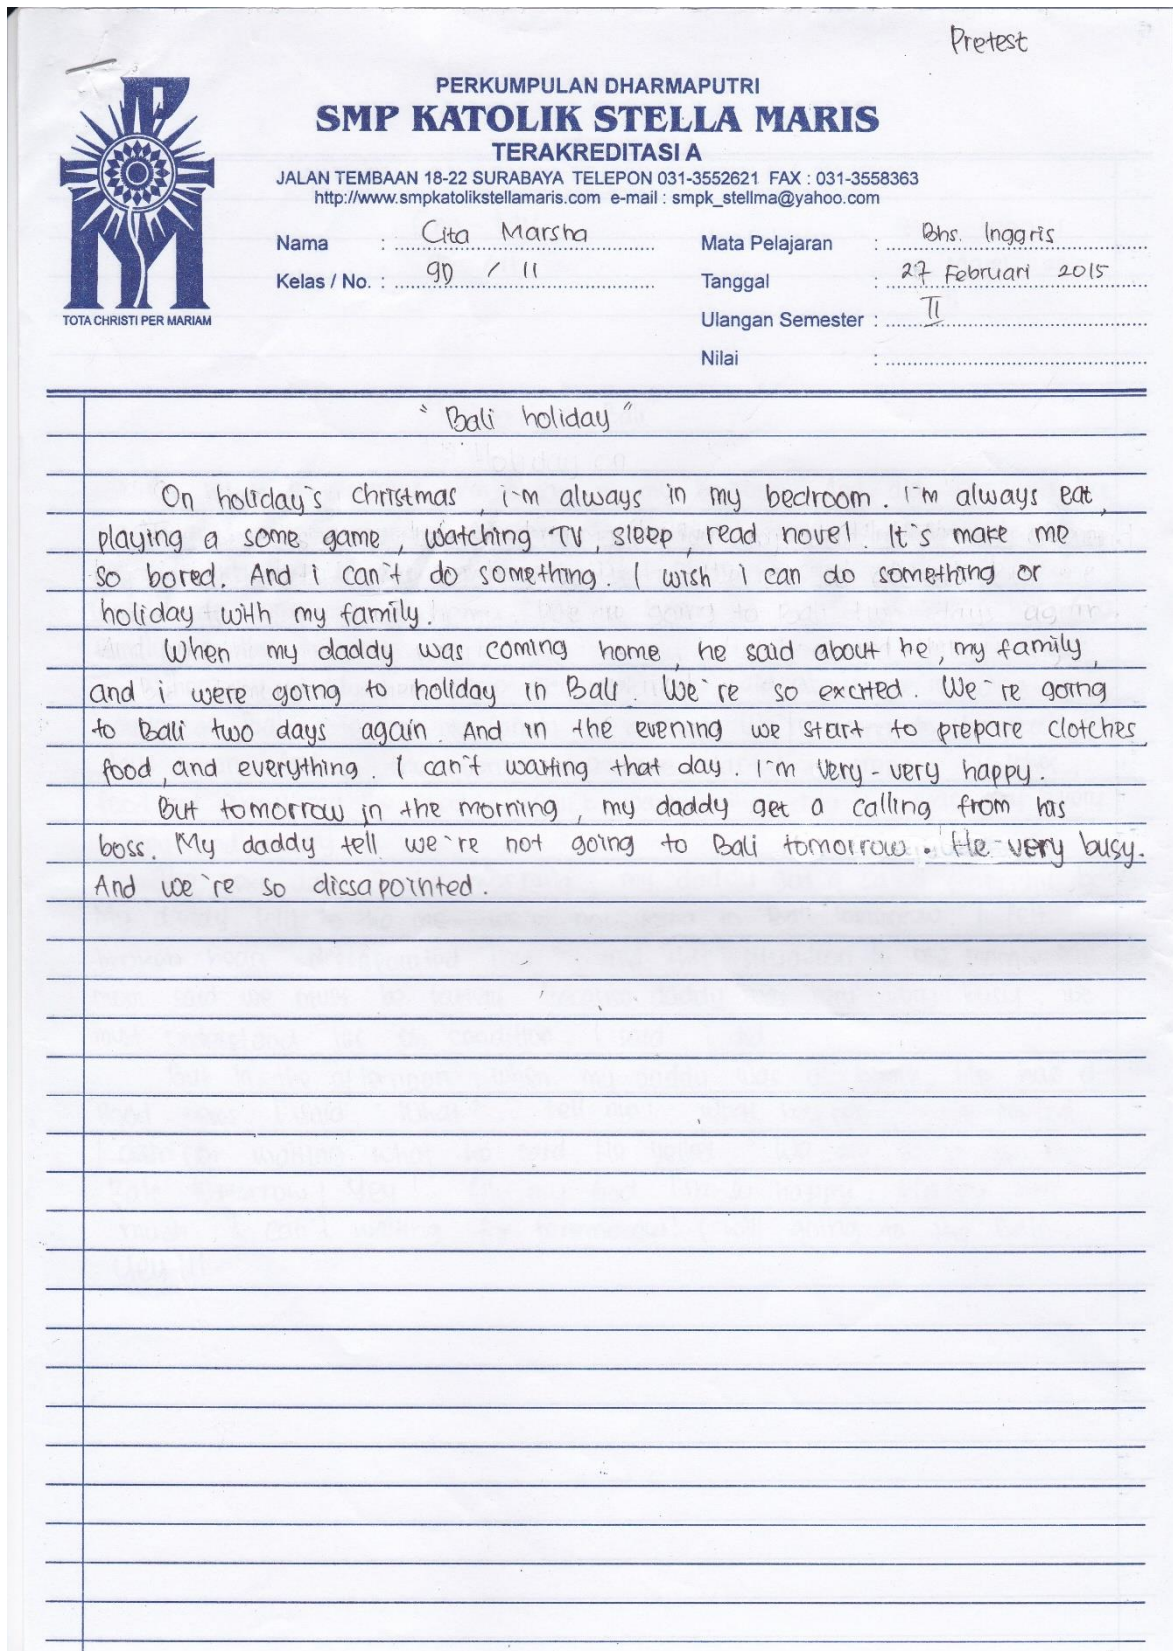 Pretest
PERKUMPULAN DHARMAPUTRI
SMP KATOLIK STELLA MARIS
TERAKREDITASI A
JALAN TEMBAAN 18-22 SURABAYA TELEPON 031-3552621 FAX : 031-3558363
http://www.smpkatolikstellamaris.com e-mail : smpk_stellma@yahoo.com
TOTA CHRISTI PER MARIAM
Nama : Cita Marsha
Kelas / No. : 9D / 11
Mata Pelajaran : Bhs. Inggris
Tanggal : 27 Februari 2015
Ulangan Semester : II
Nilai :
" Bali holiday "
On holiday's christmas, i'm always in my bedroom. I'm always eat,
playing a some game, watching TV, sleep, read novel. It's make me
so bored. And i can't do something. I wish i can do something or
holiday with my family.
When my daddy was coming home, he said about he, my family,
and i were going to holiday in Bali. We're so excited. We're going
to Bali two days again. And in the evening we start to prepare clotches,
food, and everything. I can't waiting that day. I'm very-very happy.
But tomorrow in the morning, my daddy get a calling from his
boss. My daddy tell we're not going to Bali tomorrow. He very busy.
And we're so dissapointed.